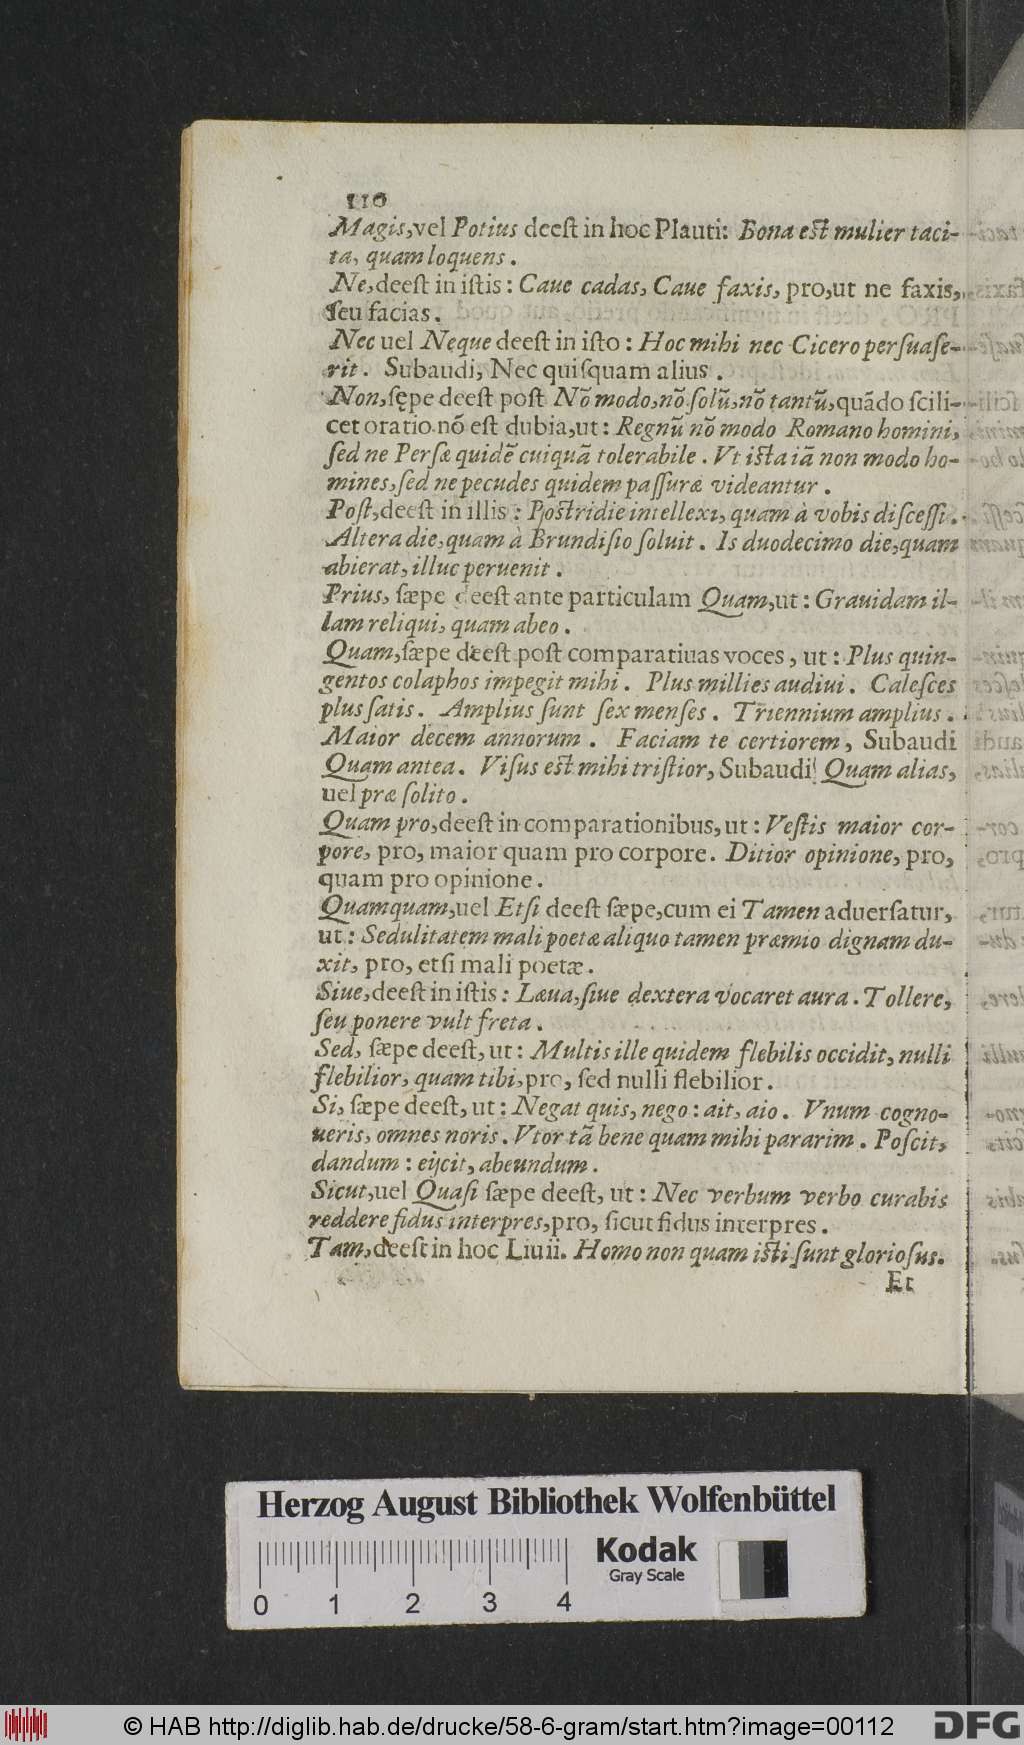 110
Magis,vel Potius deeſt in hoc Plauti: Bona eſt mulier taci-
ta, quam loquens.
Ne,deeſt in iſtis: Caue cadas, Caue faxis, pro,ut ne faxis,
ſeu facias.
Nec uel Neque deeſt in iſto: Hoc mihi nec Cicero perſuaſe-
rit. Subaudi, Nec quiſquam alius.
Non,ſępe deeſt poſt Nõ modo,nõ ſolũ,nõ tantũ,quãdo ſcili-
cet oratio nõ eſt dubia,ut: Regnũ nõ modo Romano homini,
ſed ne Perſæ quidẽ cuiquã tolerabile. Vt iſta iã non modo ho-
mines,ſed ne pecudes quidem paſſuræ videantur.
Poſt,deeſt in illis: Poſtridie intellexi, quam à vobis diſceſſi.
Altera die,quam à Brundiſio ſoluit. Is duodecimo die,quam
abierat, illuc peruenit.
Prius, ſæpe deeſt ante particulam Quam,ut: Grauidam il-
lam reliqui, quam abeo.
Quam,ſæpe deeſt poſt comparatiuas voces, ut: Plus quin-
gentos colaphos impegit mihi. Plus millies audiui. Caleſces
plus ſatis. Amplius ſunt ſex menſes. Triennium amplius.
Maior decem annorum. Faciam te certiorem, Subaudi
Quam antea. Viſus eſt mihi triſtior, Subaudi Quam alias,
uel præ ſolito.
Quam pro,deeſt in comparationibus, ut: Veſtis maior cor-
pore, pro, maior quam pro corpore. Ditior opinione, pro,
quam pro opinione.
Quamquam,uel Etſi deeſt ſæpe,cum ei Tamen aduerſatur,
ut: Sedulitatem mali poetæ aliquo tamen præmio dignam du-
xit, pro, etſi mali poetæ.
Siue,deeſt in iſtis: Læua,ſiue dextera vocaret aura. Tollere,
ſeu ponere vult freta.
Sed, ſæpe deeſt, ut: Multis ille quidem flebilis occidit, nulli
flebilior, quam tibi,pro, ſed nulli flebilior.
Si, ſæpe deeſt, ut: Negat quis, nego: ait, aio. Vnum cogno-
ueris, omnes noris. Vtor tã bene quam mihi pararim. Poſcit,
dandum: eijcit, abeundum.
Sicut,uel Quaſi ſæpe deeſt, ut: Nec verbum verbo curabis
reddere fidus interpres,pro, ſicut fidus interpres.
Tam,deeſt in hoc Liuii. Homo non quam iſti ſunt glorioſus.
Et
Herzog August Bibliothek Wolfenbüttel
Kodak
Gray Scale
0 1 2 3 4
© HAB http://diglib.hab.de/drucke/58-6-gram/start.htm?image=00112
DFG